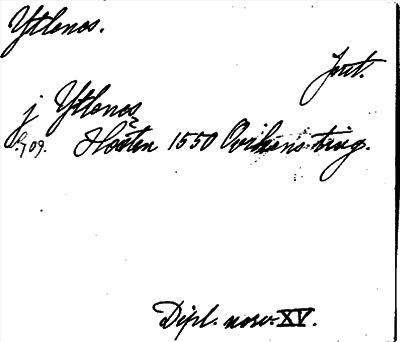 Ytlenes.
Jort.
j Ytlenes
S. 709. Hösten 1550 Ovikens ting.
Dipl. norv. XV.